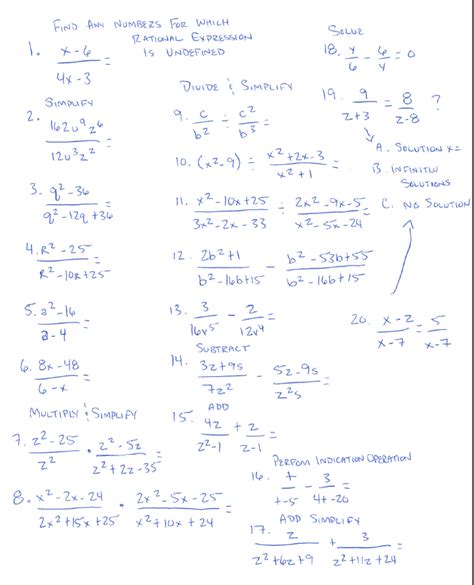 FIND ANY NUMBERS FOR WHICH
RATIONAL EXPRESSION
IS UNDEFINED
1. (x-6)/(4x-3) =
SIMPLIFY
2. (162u⁹z⁶)/(12u³z²) =
3. (q²-36)/(q²-12q+36) =
4. (R²-25)/(R²-10R+25) =
5. (a²-16)/(a-4) =
6. (8x-48)/(6-x) =
MULTIPLY & SIMPLIFY
7. (z²-25)/z² · (z²-5z)/(z²+2z-35) =
8. (x²-2x-24)/(2x²+15x+25) · (2x²-5x-25)/(x²+10x+24) =
DIVIDE & SIMPLIFY
9. c/b² ÷ c²/b³ =
10. (x²-9) ÷ (x²+2x-3)/(x²+1) =
11. (x²-10x+25)/(3x²-2x-33) ÷ (2x²-9x-5)/(x²-5x-24) =
12. (2b²+1)/(b²-16b+15) - (b²-53b+55)/(b²-16b+15) =
13. 3/(16v⁵) - 2/(12v⁴) =
SUBTRACT
14. (3z+9s)/(7z²) - (5z-9s)/(z²s) =
ADD
15. 4z/(z²-1) + 2/(z-1) =
PERFOM INDICATION OPERATION
16. t/(t-5) - 3/(4t-20) =
ADD SIMPLIFY
17. z/(z²+6z+9) + 3/(z²+11z+24) =
SOLVE
18. y/6 - 6/y = 0
19. 9/(z+3) = 8/(z-8) ?
A. SOLUTION X=
B. INFINITLY
SOLUTIONS
C. NO SOLUTION
20. (x-2)/(x-7) = 5/(x-7)